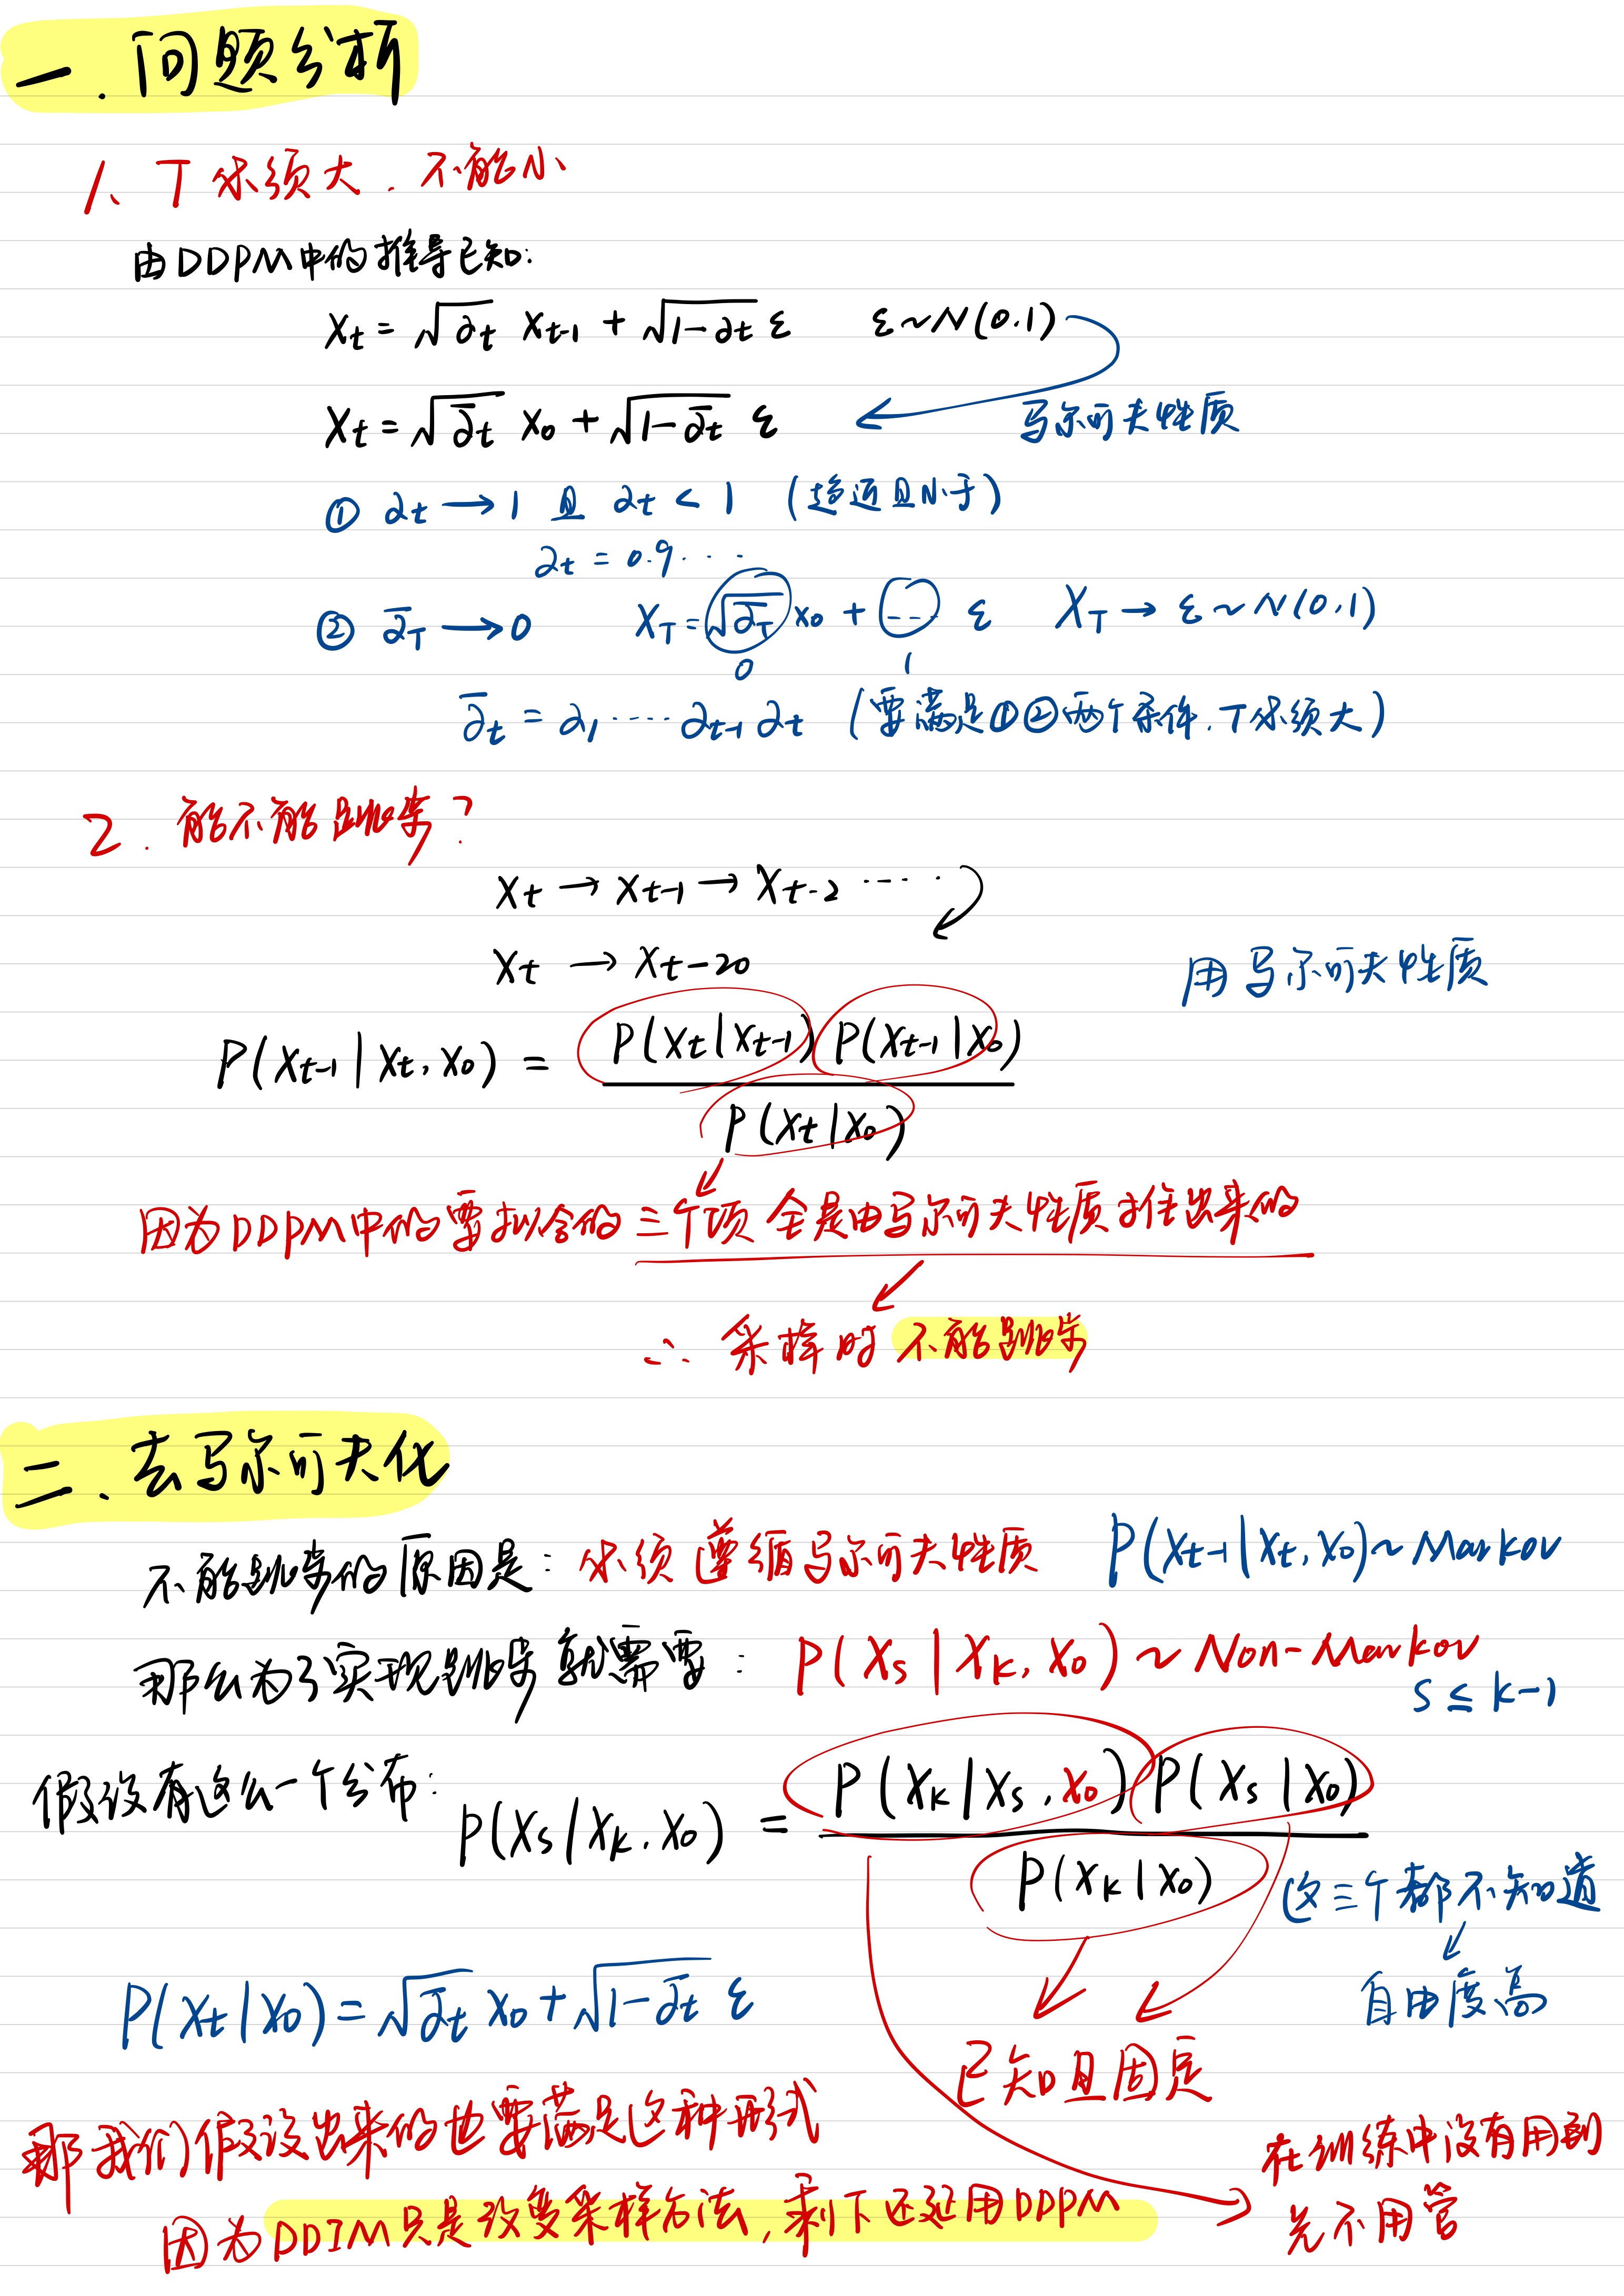 一．问题分析
1、T必须大．不能小
由DDPM中的推导已知:
Xt = √αt Xt-1 + √1-αt ε ε~N(0.1)
Xt = √ᾱt X0 + √1-ᾱt ε 马尔可夫性质
① αt → 1 且 αt < 1 (趋近且小于)
αt = 0.9....
② ᾱT → 0 XT = √ᾱT X0 + (---) ε XT → ε ~ N(0.1)
0 1
ᾱt = α1 ······ αt-1 αt (要满足①②两个条件．T必须大)
2．能不能跳步？
Xt → Xt-1 → Xt-2 ·····
Xt → Xt-20
用马尔可夫性质
P(Xt-1|Xt, X0) = P(Xt|Xt-1) P(Xt-1|X0)
P(Xt|X0)
因为DDPM中的要拟合的三个项全是由马尔可夫性质推出来的
∴ 采样时不能跳步
二、去马尔可夫化
不能跳步的原因是: 必须遵循马尔可夫性质 P(Xt-1|Xt, X0) ~ Markov
那么为了实现跳步就需要: P(Xs|Xk, X0) ~ Non-Markov
s ≤ k-1
假设有这么一个分布: P(Xs|Xk, X0) = P(Xk|Xs, X0) P(Xs|X0)
P(Xk|X0)
这三个都不知道
自由度高
P(Xt|X0) = √ᾱt X0 + √1-ᾱt ε
已知且固定
那我们假设出来的也要满足这种形式
在训练中没有用到
先不用管
因为DDIM只是改变采样方法, 剩下还延用DDPM